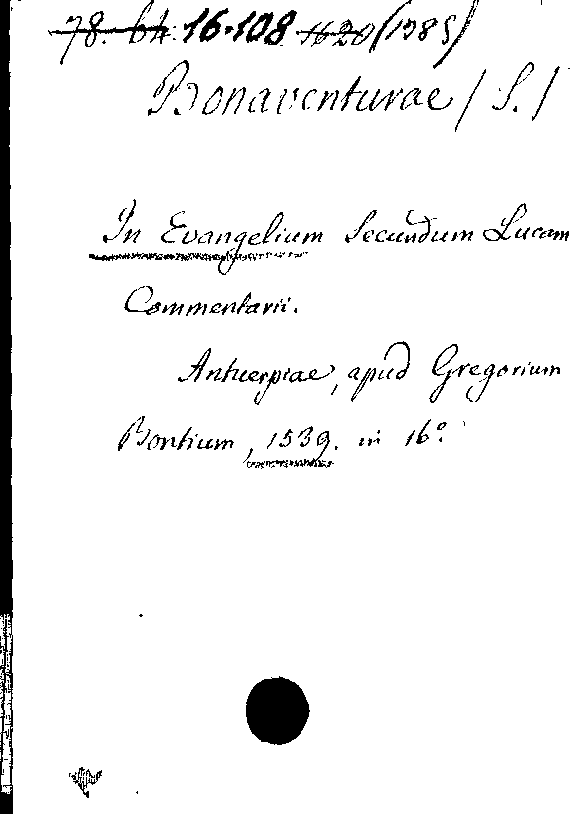 78. 64. 16.108 1620 (1585)
Bonaventurae / S. /
In Evangelium Secundum Lucam
Commentarii.
Antuerpiae, apud Gregorium
Bontium, 1539. in 16º.